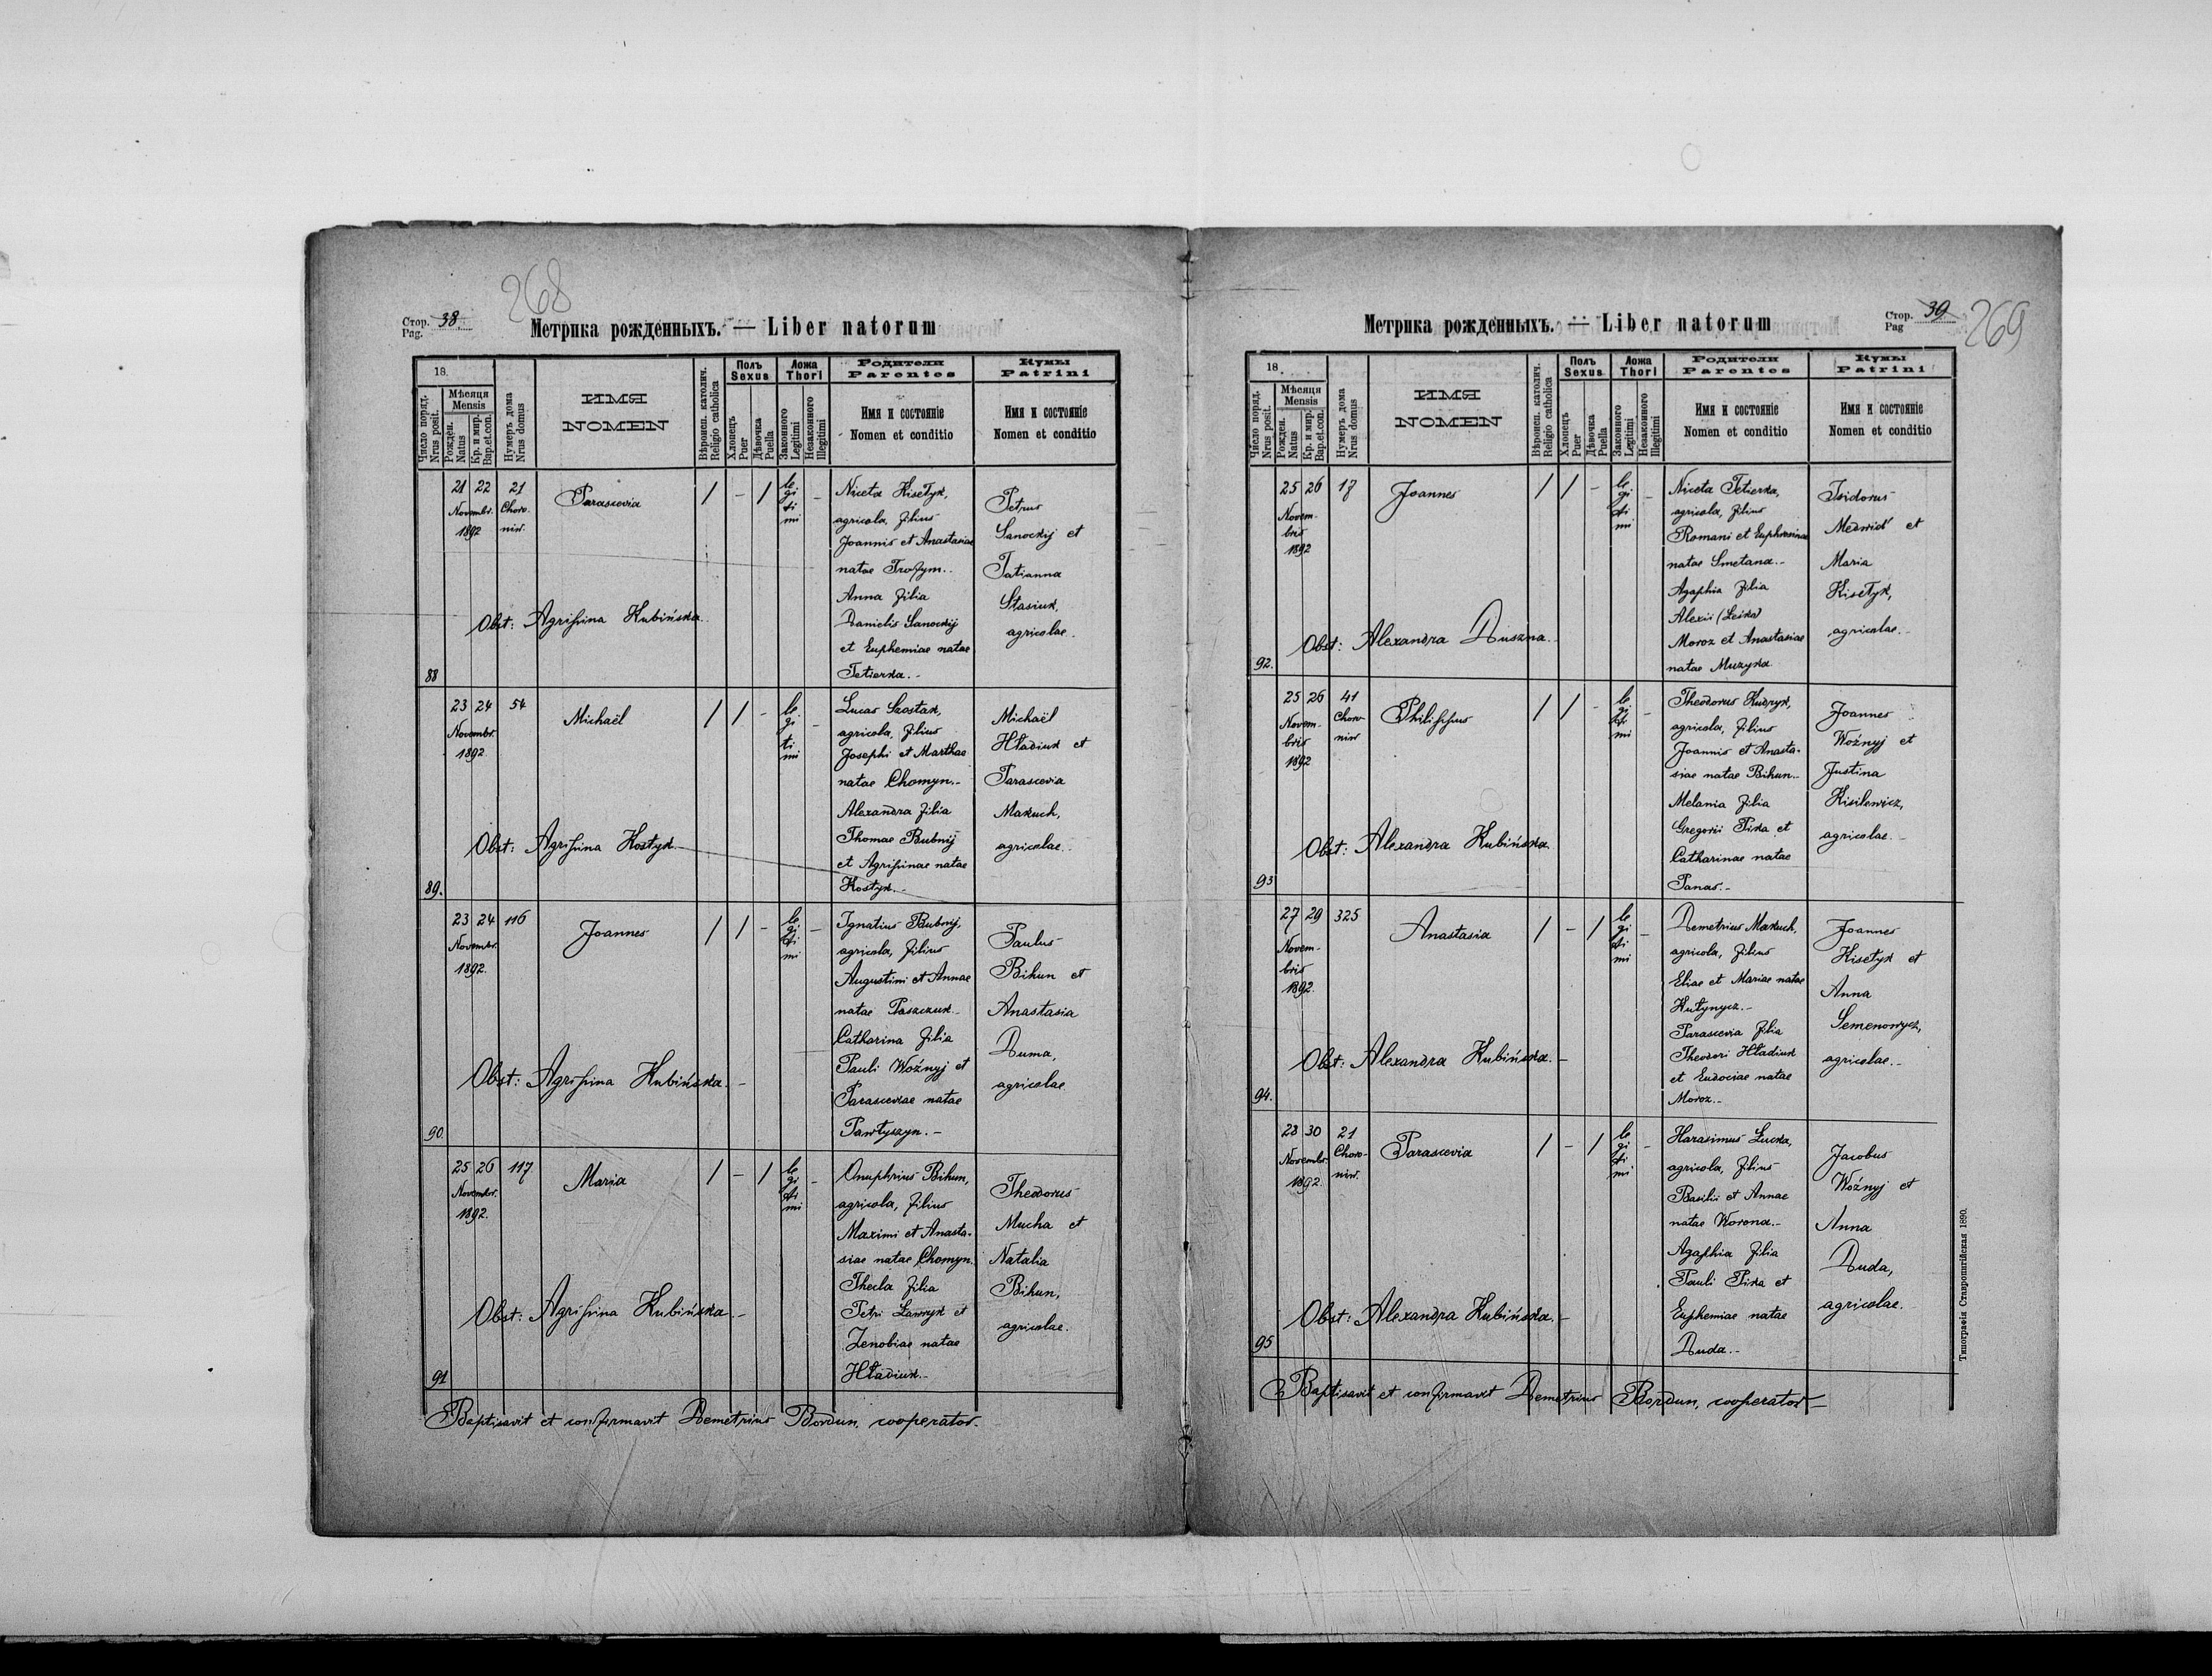 268
Стор. 38.
Pag.
Метрика рожденныхъ. — Liber natorum
18
Число поряд. Nrus posit.
Мѣсяця Mensis
Рожден. Natus
Кр. и мир. Bap.et.con.
Нумеръ дома Nrus domus
ИМЯ
NOMEN
Вѣроисп. католич. Religio catholica
Полъ Sexus
Хлопецъ Puer
Дѣвочка Puella
Ложа Thori
Законного Legitimi
Незаконного Illegitimi
Родители
Parentes
Имя и состояніе
Nomen et conditio
Кумы
Patrini
Имя и состояніе
Nomen et conditio
88
21 22 Novembr. 1892
21 Choro-
niw.
Parascevia
/ - / legitimi -
Niceta Kisełyk,
agricola, filius
Joannis et Anastasiae
natae Trofym.-
Anna filia
Danielis Sanockij
et Euphemiae natae
Tetierka.-
Petrus
Sanockij et
Tatianna
Stasiuk,
agricolae.
Obst: Agrifina Kubińska.
89.
23 24 Novembr. 1892
54
Michaël
/ / - legitimi -
Lucas Szostak,
agricola, filius
Josephi et Marthae
natae Chomyn.-
Alexandra filia
Thomae Bubnij
et Agrifinae natae
Kostyk.-
Michaël
Hładiuk et
Parascevia
Makuch,
agricolae.
Obst: Agrifina Kostyk.
90.
23 24 Novembr. 1892.
116
Joannes
/ / - legitimi -
Ignatius Bubnij,
agricola, filius
Augustini et Annae
natae Paszczuk.-
Catharina filia
Pauli Woźnyj et
Parasceviae natae
Pawłyszyn.-
Paulus
Bihun et
Anastasia
Duma,
agricolae.
Obst: Agrifina Kubińska.-
91
25 26 Novembr. 1892.
117
Maria
/ - / legitimi -
Onuphrius Bihun,
agricola, filius
Maximi et Anasta-
siae natae Chomyn.
Thecla filia
Petri Ławryk et
Zenobiae natae
Hładiuk.-
Theodorus
Mucha et
Natalia
Bihun,
agricolae.
Obst: Agrifina Kubińska.-
Baptisavit et confirmavit Demetrius Bordun, cooperator.
Метрика рожденныхъ. — Liber natorum
Стор. 39
Pag
269
18
Число поряд. Nrus posit.
Мѣсяця Mensis
Рожден. Natus
Кр. и мир. Bap.et.con.
Нумеръ дома Nrus domus
ИМЯ
NOMEN
Вѣроисп. католич. Religio catholica
Полъ Sexus
Хлопецъ Puer
Дѣвочка Puella
Ложа Thori
Законного Legitimi
Незаконного Illegitimi
Родители
Parentes
Имя и состояніе
Nomen et conditio
Кумы
Patrini
Имя и состояніе
Nomen et conditio
92.
25 26 Novem-
bris
1892
17
Joannes
/ / - legitimi -
Niceta Tetierka,
agricola, filius
Romani et Euphrosinae
natae Smetana.-
Agaphia filia
Alexii (Leśka)
Moroz et Anastasiae
natae Muzyka
Isidorus
Medwid' et
Maria
Kisełyk,
agricolae.-
Obst: Alexandra Duszna.-
93
25 26 Novem-
bris
1892
41 Choro-
niw
Philippus
/ / - legitimi -
Theodorus Kudryk,
agricola, filius
Joannis et Anasta-
siae natae Bihun.-
Melania filia
Gregorii Pika et
Catharinae natae
Panas.-
Joannes
Woźnyj et
Justina
Kisilewicz,
agricolae.-
Obst: Alexandra Kubińska.
94.
27 29 Novem-
bris
1892.
325
Anastasia
/ - / legitimi -
Demetrius Makuch,
agricola, filius
Eliae et Mariae natae
Kutynycz.-
Parascevia filia
Theodori Hładiuk
et Eudociae natae
Moroz.-
Joannes
Kisełyk et
Anna
Semenowycz,
agricolae.-
Obst: Alexandra Kubińska.-
95
28 30 Novembr. 1892.
21 Choro-
niw.
Parascevia
/ - / legitimi -
Harasimus Łucka,
agricola, filius
Basilii et Annae
natae Worona.-
Agaphia filia
Pauli Pika et
Euphemiae natae
Duda.-
Jacobus
Woźnyj et
Anna
Duda,
agricolae.
Obst: Alexandra Kubińska.-
Baptisavit et confirmavit Demetrius Bordun, cooperator-
Типографія Ставропигійская 1890.